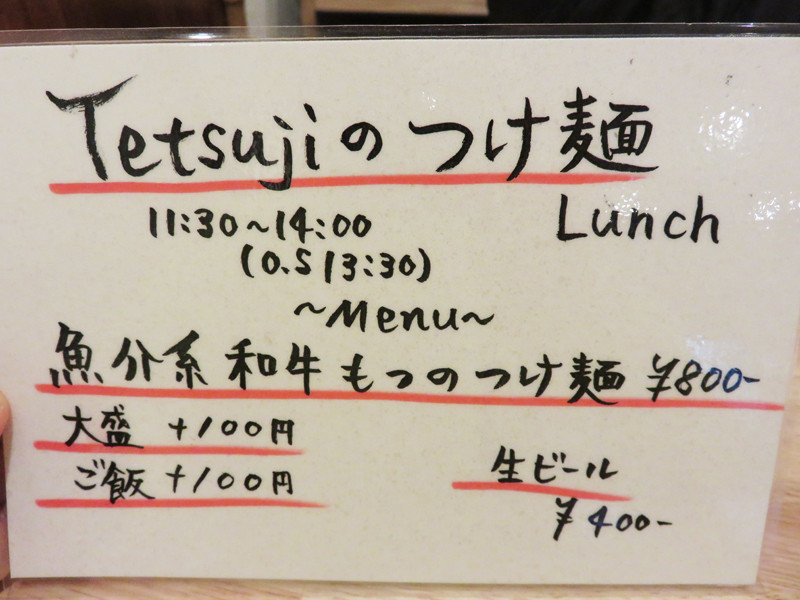 Tetsujiのつけ麺
11:30～14:00
Lunch
(O.S 13:30)
～Menu～
魚介系 和牛もつのつけ麺 ¥800-
大盛 +100円
ご飯 +100円
生ビール
¥400-